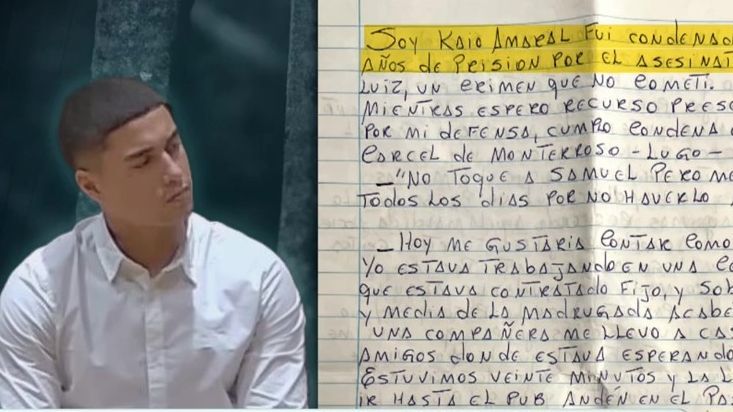 SOY KAIO AMARAL FUI CONDENAD
AÑOS DE PRISION POR EL ASESINAT
LUIZ, UN CRIMEN QUE NO COMETI.
MIENTRAS ESPERO RECURSO PRESE
POR MI DEFENSA, CUMPLO CONDENA
CARCEL DE MONTERROSO - LUGO -
- "NO TOQUE A SAMUEL PERO ME
TODOS LOS DIAS POR NO HAVERLO
- HOY ME GUSTARIA CONTAR COMO
YO ESTAVA TRABAJANDO EN UNA CO
QUE ESTAVA CONTRATADO FIJO, Y SOB
Y MEDIA DE LA MADRUGADA ACABE
UNA COMPAÑERA ME LLEVO A CAS
AMIGOS DONDE ESTAVA ESPERANDO
ESTUVIMOS VEINTE MINUTOS Y LA L
IR HASTA EL PUB ANDÉN EN EL PAS